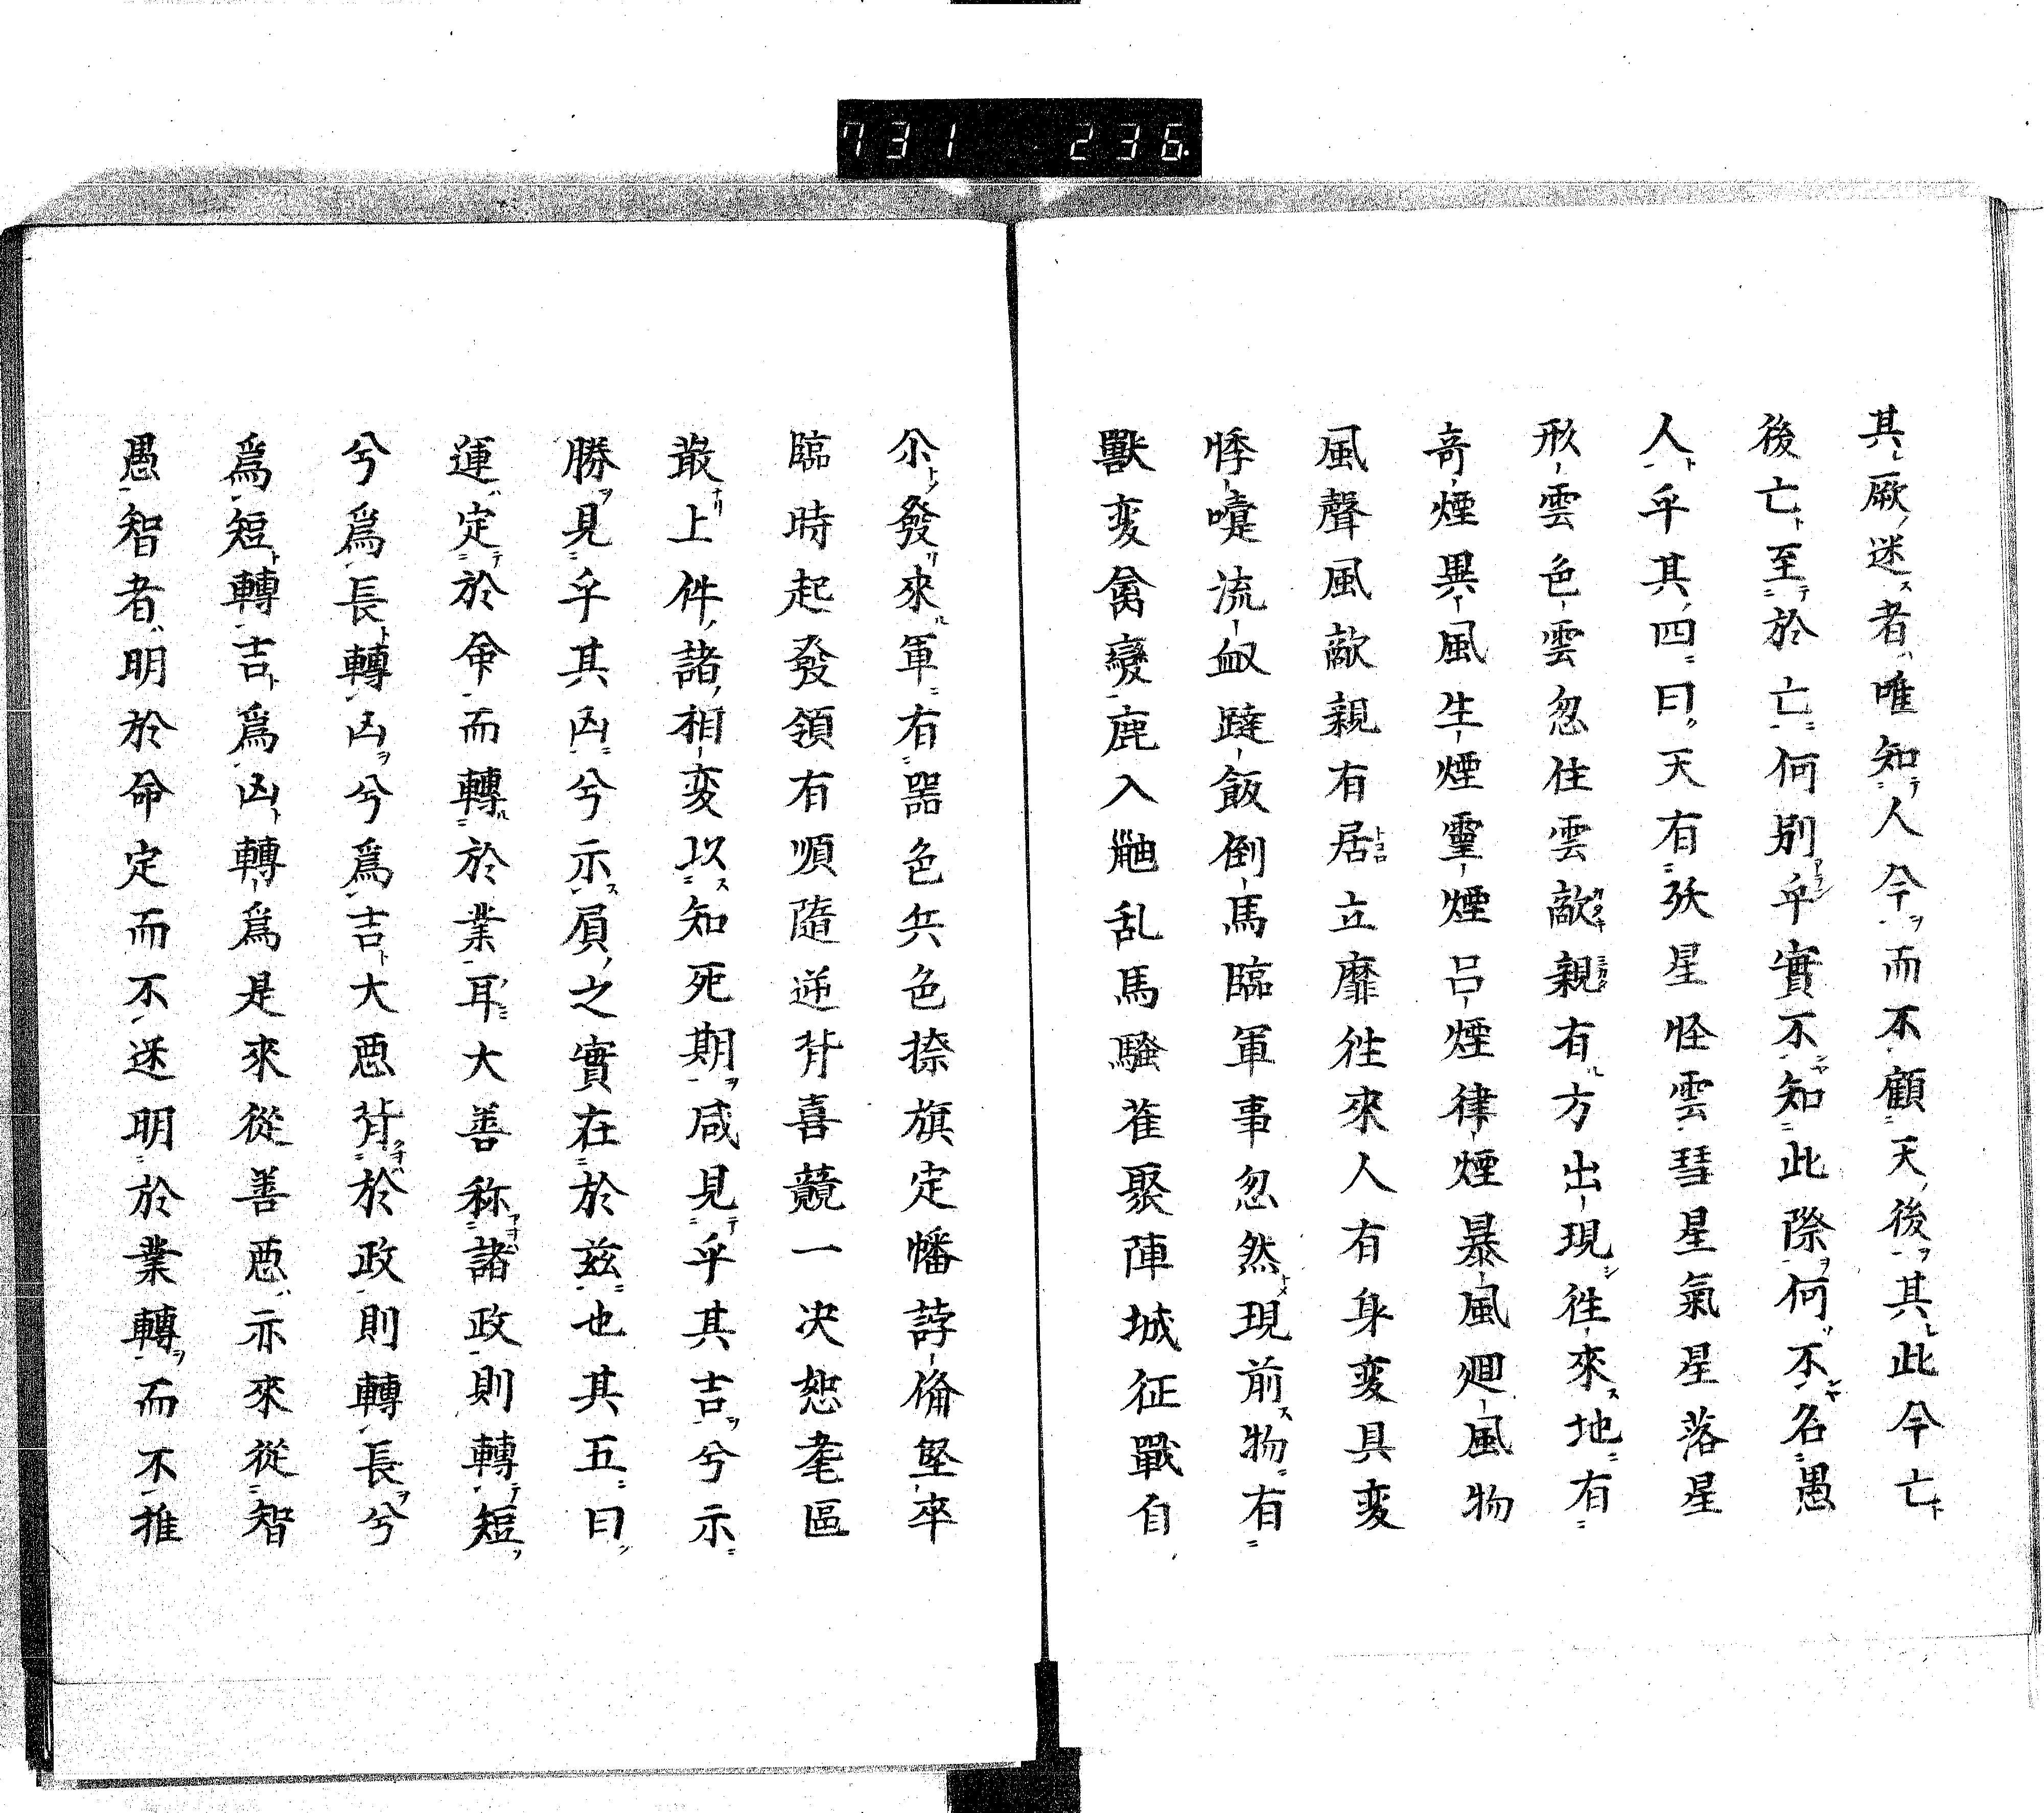 731 236
其厥迷者唯知人今而不顧天後其此今亡
後亡至於亡何別乎實不知此際何不名愚
人乎其四曰天有妖星怪雲彗星氣星落星
形雲色雲忽住雲敵親有方出現徃來地有
奇煙異風生煙靈煙呂煙律煙暴風廻風物
風聲風敵親有居立靡徃來人有身変具変
悸嚏流血躂飯倒馬臨軍事忽然現前物有
獸変禽變鹿入鼬乱馬騷雀聚陣城征戰自
尒發來軍有噐色兵色捺旗定幡誖偹堅卒
臨時起發領有順隨逆背喜競一决恕耄區
最上件諸相変以知死期咸見乎其吉兮示
勝見乎其凶兮示屓之實在於兹也其五曰
運定於命而轉於業耳大善称諸政則轉短
兮爲長轉凶兮爲吉大悪背於政則轉長兮
爲短轉吉爲凶轉爲是來從善悪亦來從智
愚智者明於命定而不迷明於業轉而不推